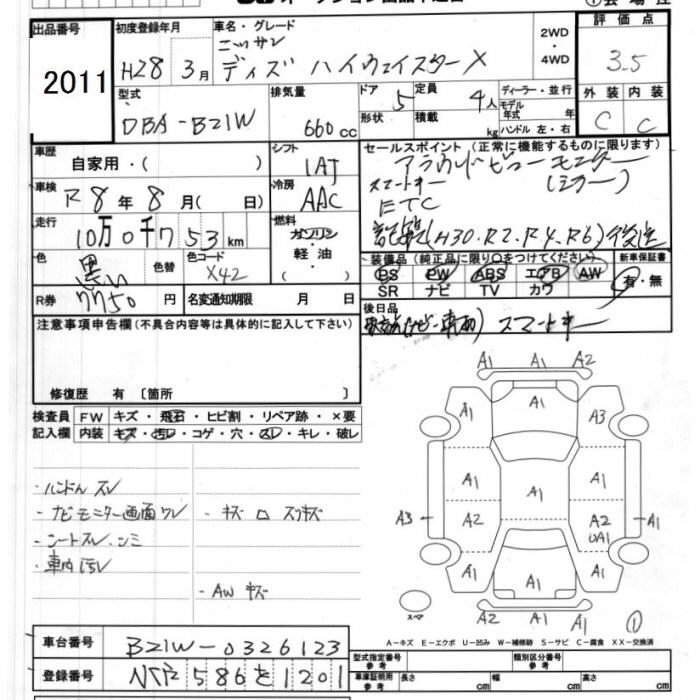 出品番号 2011
初度登録年月 H28年 3月
車名・グレード
ニッサン
デイズ ハイウェイスターX
2WD・4WD
評価点 3.5
外装 C 内装 C
型式 DBA-B21W
排気量 660cc
ドア 5 定員 4人
形状 積載 kg
ディーラー・並行
モデル年式 年
ハンドル 左・右
車歴 自家用・( )
シフト IAT
セールスポイント(正常に機能するものに限ります)
アラウンドビューモニター
スマートキー (ミラー)
ETC
記録簿(H30.R2.R4.R6)後送
車検 R8年8月( 日)
冷房 AAC
走行 10万0千753km
燃料 ガソリン・軽油・( )
色 黒い 色替 色コード X42
装備品(純正品に限り○をつけてください) 新車保証書
PS PW ABS エアB AW 有・無
SR ナビ TV カワ
R券 7750円 名変通知期限 月 日
後日品
スマートキー
注意事項申告欄(不具合内容等は具体的に記入して下さい)
修復歴 有 〔箇所 〕
検査員記入欄
FW キズ・飛石・ヒビ割・リペア跡・×要
内装 キズ・汚レ・コゲ・穴・スレ・キレ・破レ
・ハンドルスレ
・ナビモニター画面ワレ
・キズ ロ スリキズ
・シートスレ.シミ
・車内汚レ
・AW キズ
A1 A1 A2
A1 A1 A3
A1 A1 A1
A3 A2 A2 UA1 A1
A1 A1 A1
A1 A2 A1
スペア
①
A-キズ E-エクボ U-凹み W-補修跡 S-サビ C-腐食 XX-交換済
車台番号 B21W-0326123
登録番号 586 を 1201
型式指定番号 参考 類別区分番号 参考
車庫証明用 参考 長さ cm 幅 cm 高さ cm